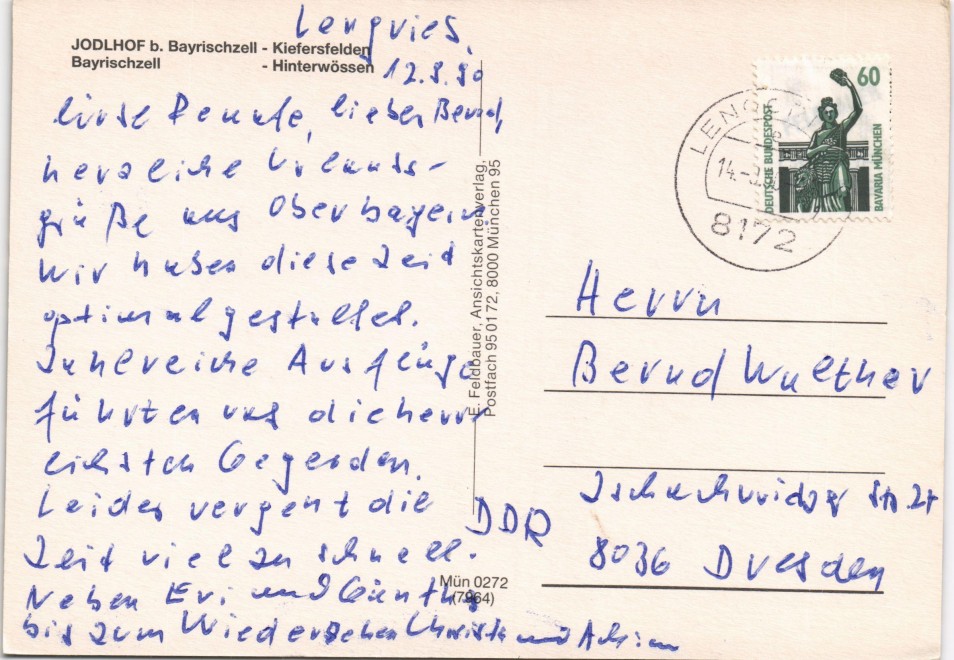 Lengries,
12.8.90
JODLHOF b. Bayrischzell - Kiefersfelden
Bayrischzell - Hinterwössen
liebe Renate, lieber Bernd,
herzliche Urlaubs-
grüße aus Oberbayern
Wir haben diese Zeit
optimal gestaltet.
Zahlreiche Ausflüge
führten uns die herr-
lichsten Gegenden.
Leider vergeht die
Zeit viel zu schnell.
Neben Evi und Günther
bis zum Wiedersehen Christa und
E. Feldbauer, Ansichtskartenverlag,
Postfach 95 01 72, 8000 München 95
Mün 0272
(7964)
60
DEUTSCHE BUNDESPOST
BAVARIA MÜNCHEN
14.-
8172
Herrn
Bernd Walther
Str. 24
DDR
8036 Dresden